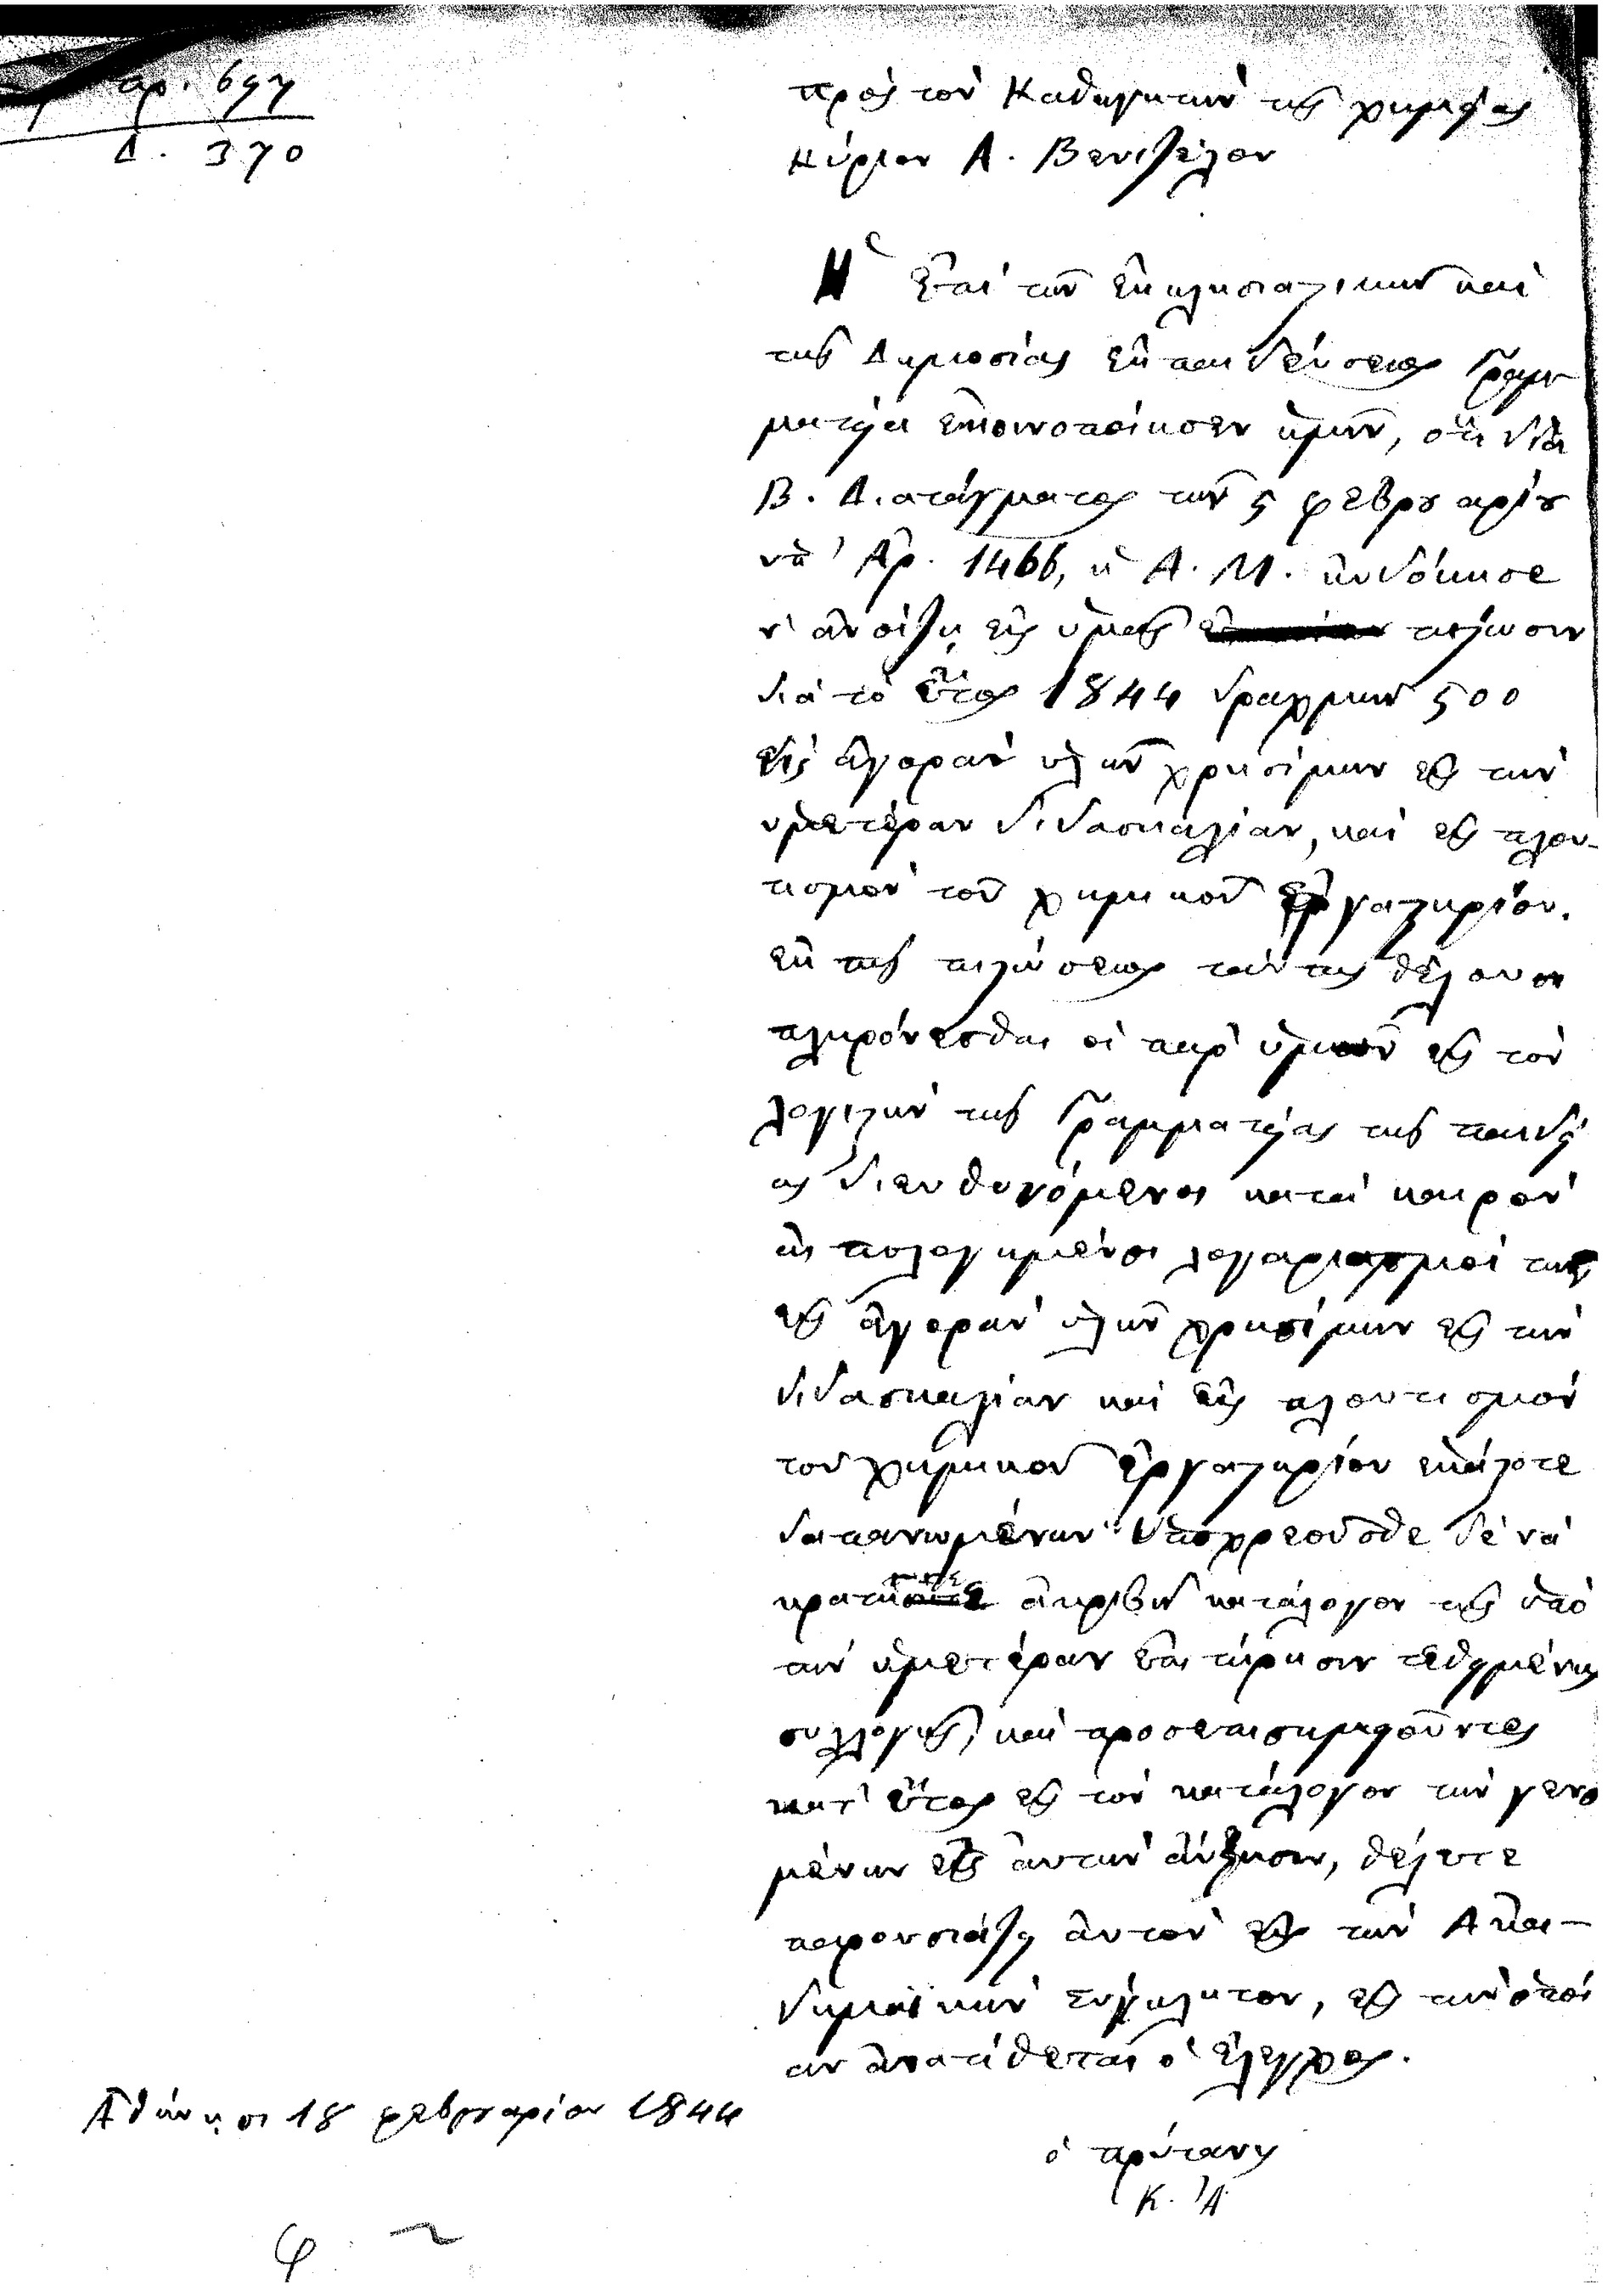 αρ. 697
Δ. 370
πρὸς τὸν Καθηγητὴν τῆς χημείας
Κύριον Α. Βενιζέλον
Ἡ ἐπὶ τῶν ἐκκλησιαστικῶν καὶ
τῆς Δημοσίας ἐκπαιδεύσεως Γραμ-
ματεία ἐκοινοποίησεν ἡμῖν, ὅτι διὰ
Β. Διατάγματος τῶν 5 φεβρουαρίου
ὑπ' Ἀρ. 1466, ἡ Α. Μ. ηὐδόκησε
ν' ἀνοίξῃ εἰς ὑμᾶς πίστωσιν
διὰ τὸ ἔτος 1844 δραχμῶν 500
εἰς ἀγορὰν ὑλῶν χρησίμων εἰς τὴν
ὑμετέραν διδασκαλίαν, καὶ εἰς πλου-
τισμὸν τοῦ χημικοῦ ἐργαστηρίου.
ἐκ τῆς πιστώσεως ταύτης θέλουσι
πληρόνεσθαι οἱ παρ' ὑμῶν εἰς τὸν
λογιστὴν τῆς Γραμματείας τῆς παιδεί
ας διευθυνόμενοι κατὰ καιρὸν
λογαριασμοὶ τῶν
εἰς ἀγορὰν ὑλῶν χρησίμων εἰς τὴν
διδασκαλίαν καὶ εἰς πλουτισμὸν
τοῦ χημικοῦ ἐργαστηρίου ἑκάστοτε
δαπανωμένων· Ὑποχρεοῦσθε δὲ νὰ
κρατῆτε ἀκριβῆ κατάλογον τῆς ὑπὸ
τὴν ὑμετέραν ἐπιτήρησιν τεθειμένης
συλλογῆς, καὶ προσεπισημειοῦντες
κατ' ἔτος εἰς τὸν κατάλογον τὴν γενο
μένην εἰς αὐτὴν αὔξησιν, θέλετε
παρουσιάζει αὐτὸν εἰς τὴν Ἀκα-
δημαϊκὴν Σύγκλητον, εἰς τὴν ὁποί
αν ἀνατίθεται ὁ ἔλεγχος.
Ἀθήνησι 18 φεβρουαρίου 1844
ὁ πρύτανις
Κ. Ἀ.